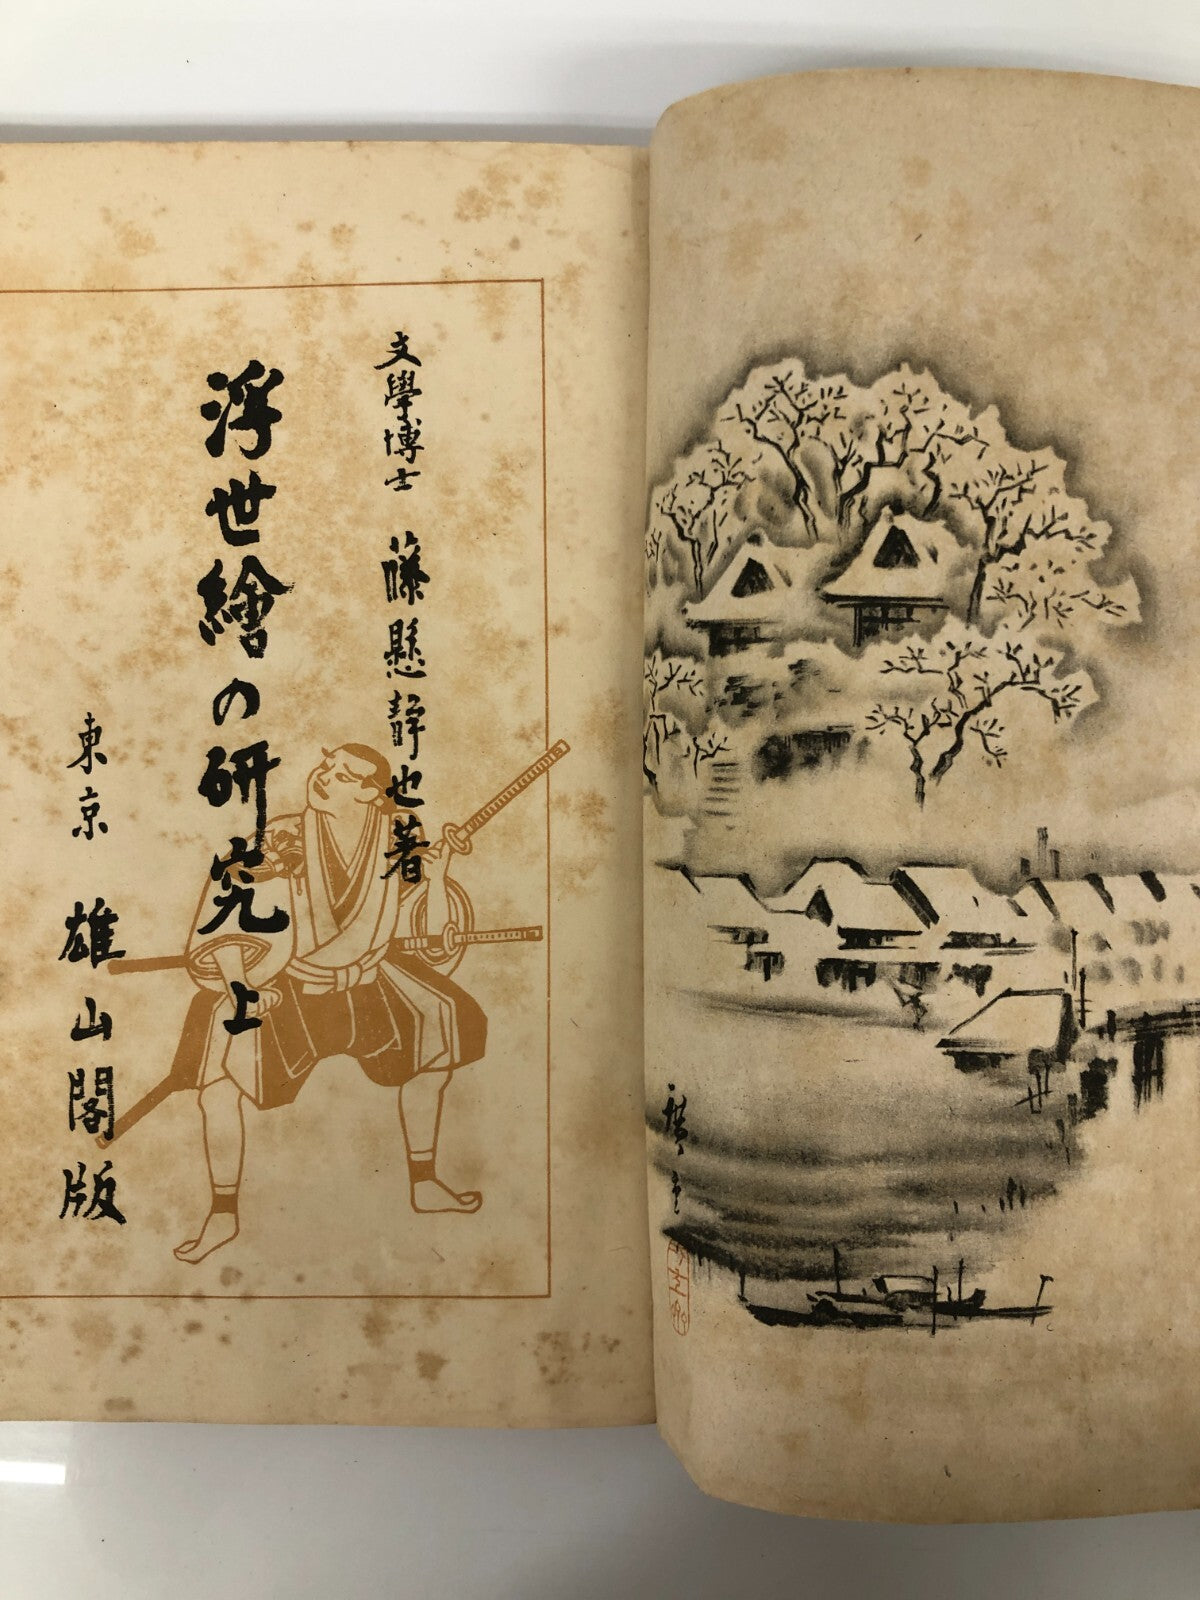 文學博士 藤懸靜也著
浮世繪の研究 上
東京 雄山閣版
廣重